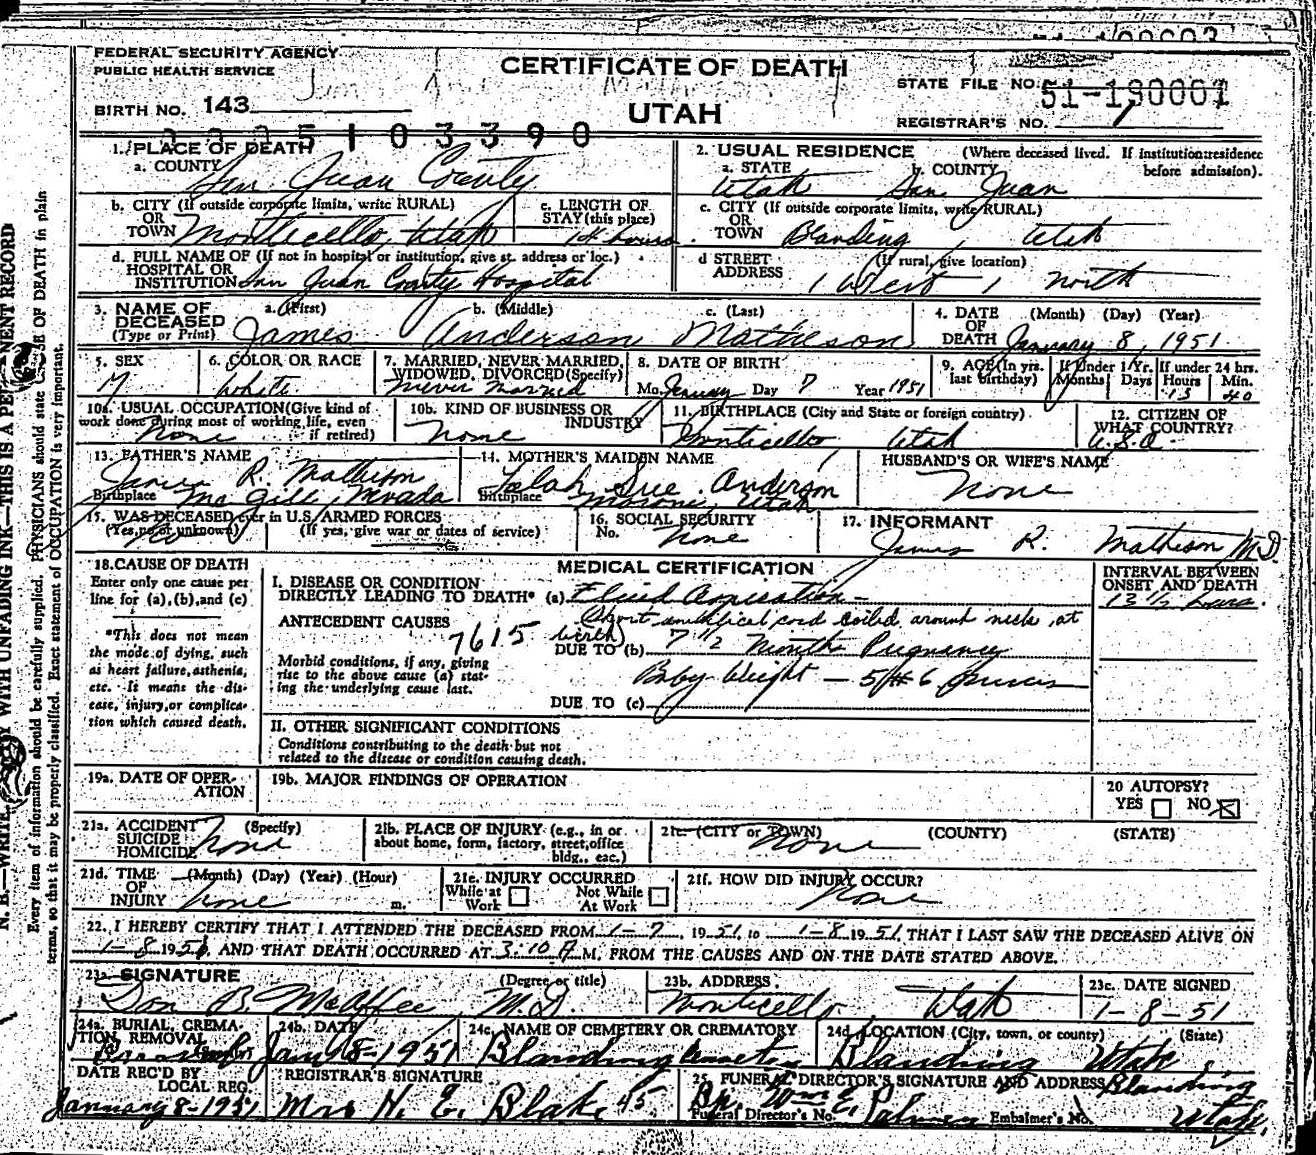 FEDERAL SECURITY AGENCY
PUBLIC HEALTH SERVICE
CERTIFICATE OF DEATH
UTAH
STATE FILE NO. 51-190001
BIRTH NO. 143
REGISTRAR'S NO. 1
1. PLACE OF DEATH
a. COUNTY San Juan County
2. USUAL RESIDENCE (Where deceased lived. If institution:residence before admission).
a. STATE Utah b. COUNTY San Juan
b. CITY (If outside corporate limits, write RURAL)
OR
TOWN Monticello, Utah
c. LENGTH OF STAY (this place) hours.
c. CITY (If outside corporate limits, write RURAL)
OR
TOWN Blanding, Utah
d. FULL NAME OF (If not in hospital or institution, give st. address or loc.)
HOSPITAL OR
INSTITUTION San Juan County Hospital
d STREET ADDRESS (If rural, give location)
1 West 1 North
3. NAME OF DECEASED (Type or Print)
a. (First) b. (Middle) c. (Last)
James Anderson Matheson
4. DATE OF DEATH (Month) (Day) (Year)
January 8, 1951
5. SEX
M
6. COLOR OR RACE
White
7. MARRIED, NEVER MARRIED, WIDOWED, DIVORCED (Specify)
Never Married
8. DATE OF BIRTH
Mo. January Day 7 Year 1951
9. AGE (In yrs. last birthday)
If Under 1 Yr. Months Days
If under 24 hrs. Hours Min.
13 40
10a. USUAL OCCUPATION (Give kind of work done during most of working life, even if retired)
None
10b. KIND OF BUSINESS OR INDUSTRY
None
11. BIRTHPLACE (City and State or foreign country)
Monticello, Utah
12. CITIZEN OF WHAT COUNTRY?
U.S.A.
13. FATHER'S NAME
James R. Mathison
Birthplace McGill, Nevada
14. MOTHER'S MAIDEN NAME
Sue Anderson
Birthplace Moroni, Utah
HUSBAND'S OR WIFE'S NAME
None
15. WAS DECEASED ever in U.S. ARMED FORCES
(Yes, no or unknown) (If yes, give war or dates of service)
16. SOCIAL SECURITY
No. None
17. INFORMANT
James R. Mathison M.D.
18. CAUSE OF DEATH
Enter only one cause per line for (a), (b), and (c)
*This does not mean the mode of dying, such as heart failure, asthenia, etc. It means the disease, injury, or complication which caused death.
MEDICAL CERTIFICATION
INTERVAL BETWEEN ONSET AND DEATH
I. DISEASE OR CONDITION
DIRECTLY LEADING TO DEATH* (a) Fluid Aspiration
13 1/2 hours.
ANTECEDENT CAUSES
7615
Short umbilical cord coiled around neck at birth)
DUE TO (b) 7 1/2 Months Pregnancy
Morbid conditions, if any, giving rise to the above cause (a) stating the underlying cause last.
Baby Weight - 5# 6 ounces
DUE TO (c)
II. OTHER SIGNIFICANT CONDITIONS
Conditions contributing to the death but not related to the disease or condition causing death.
19a. DATE OF OPERATION
19b. MAJOR FINDINGS OF OPERATION
20 AUTOPSY?
YES NO
21a. ACCIDENT SUICIDE HOMICIDE (Specify)
None
21b. PLACE OF INJURY (e.g., in or about home, form, factory, street, office bldg., eac.)
21c. (CITY or TOWN) (COUNTY) (STATE)
None
21d. TIME OF INJURY (Month) (Day) (Year) (Hour)
None m.
21e. INJURY OCCURRED
While at Work Not While At Work
21f. HOW DID INJURY OCCUR?
None
22. I HEREBY CERTIFY THAT I ATTENDED THE DECEASED FROM 1-7, 1951, to 1-8 1951, THAT I LAST SAW THE DECEASED ALIVE ON
1-8 1951, AND THAT DEATH OCCURRED AT 3:10 A M. FROM THE CAUSES AND ON THE DATE STATED ABOVE.
23a. SIGNATURE (Degree or title)
Don B. McAffee, M.D.
23b. ADDRESS
Monticello, Utah
23c. DATE SIGNED
1-8-51
24a. BURIAL, CREMATION, REMOVAL
24b. DATE
Jan 8-1951
24c. NAME OF CEMETERY OR CREMATORY
Blanding Cemetery
24d LOCATION (City, town, or county) (State)
Blanding Utah
DATE REC'D BY LOCAL REG.
January 8-1951
REGISTRAR'S SIGNATURE
Mrs H. E. Blake 45
25. FUNERAL DIRECTOR'S SIGNATURE AND ADDRESS Blanding
Palmer Utah.
Funeral Director's No. Embalmer's No.
Every item of information should be carefully supplied. PHYSICIANS should state CAUSE OF DEATH in plain
terms, so that it may be properly classified. Exact statement of OCCUPATION is very important.